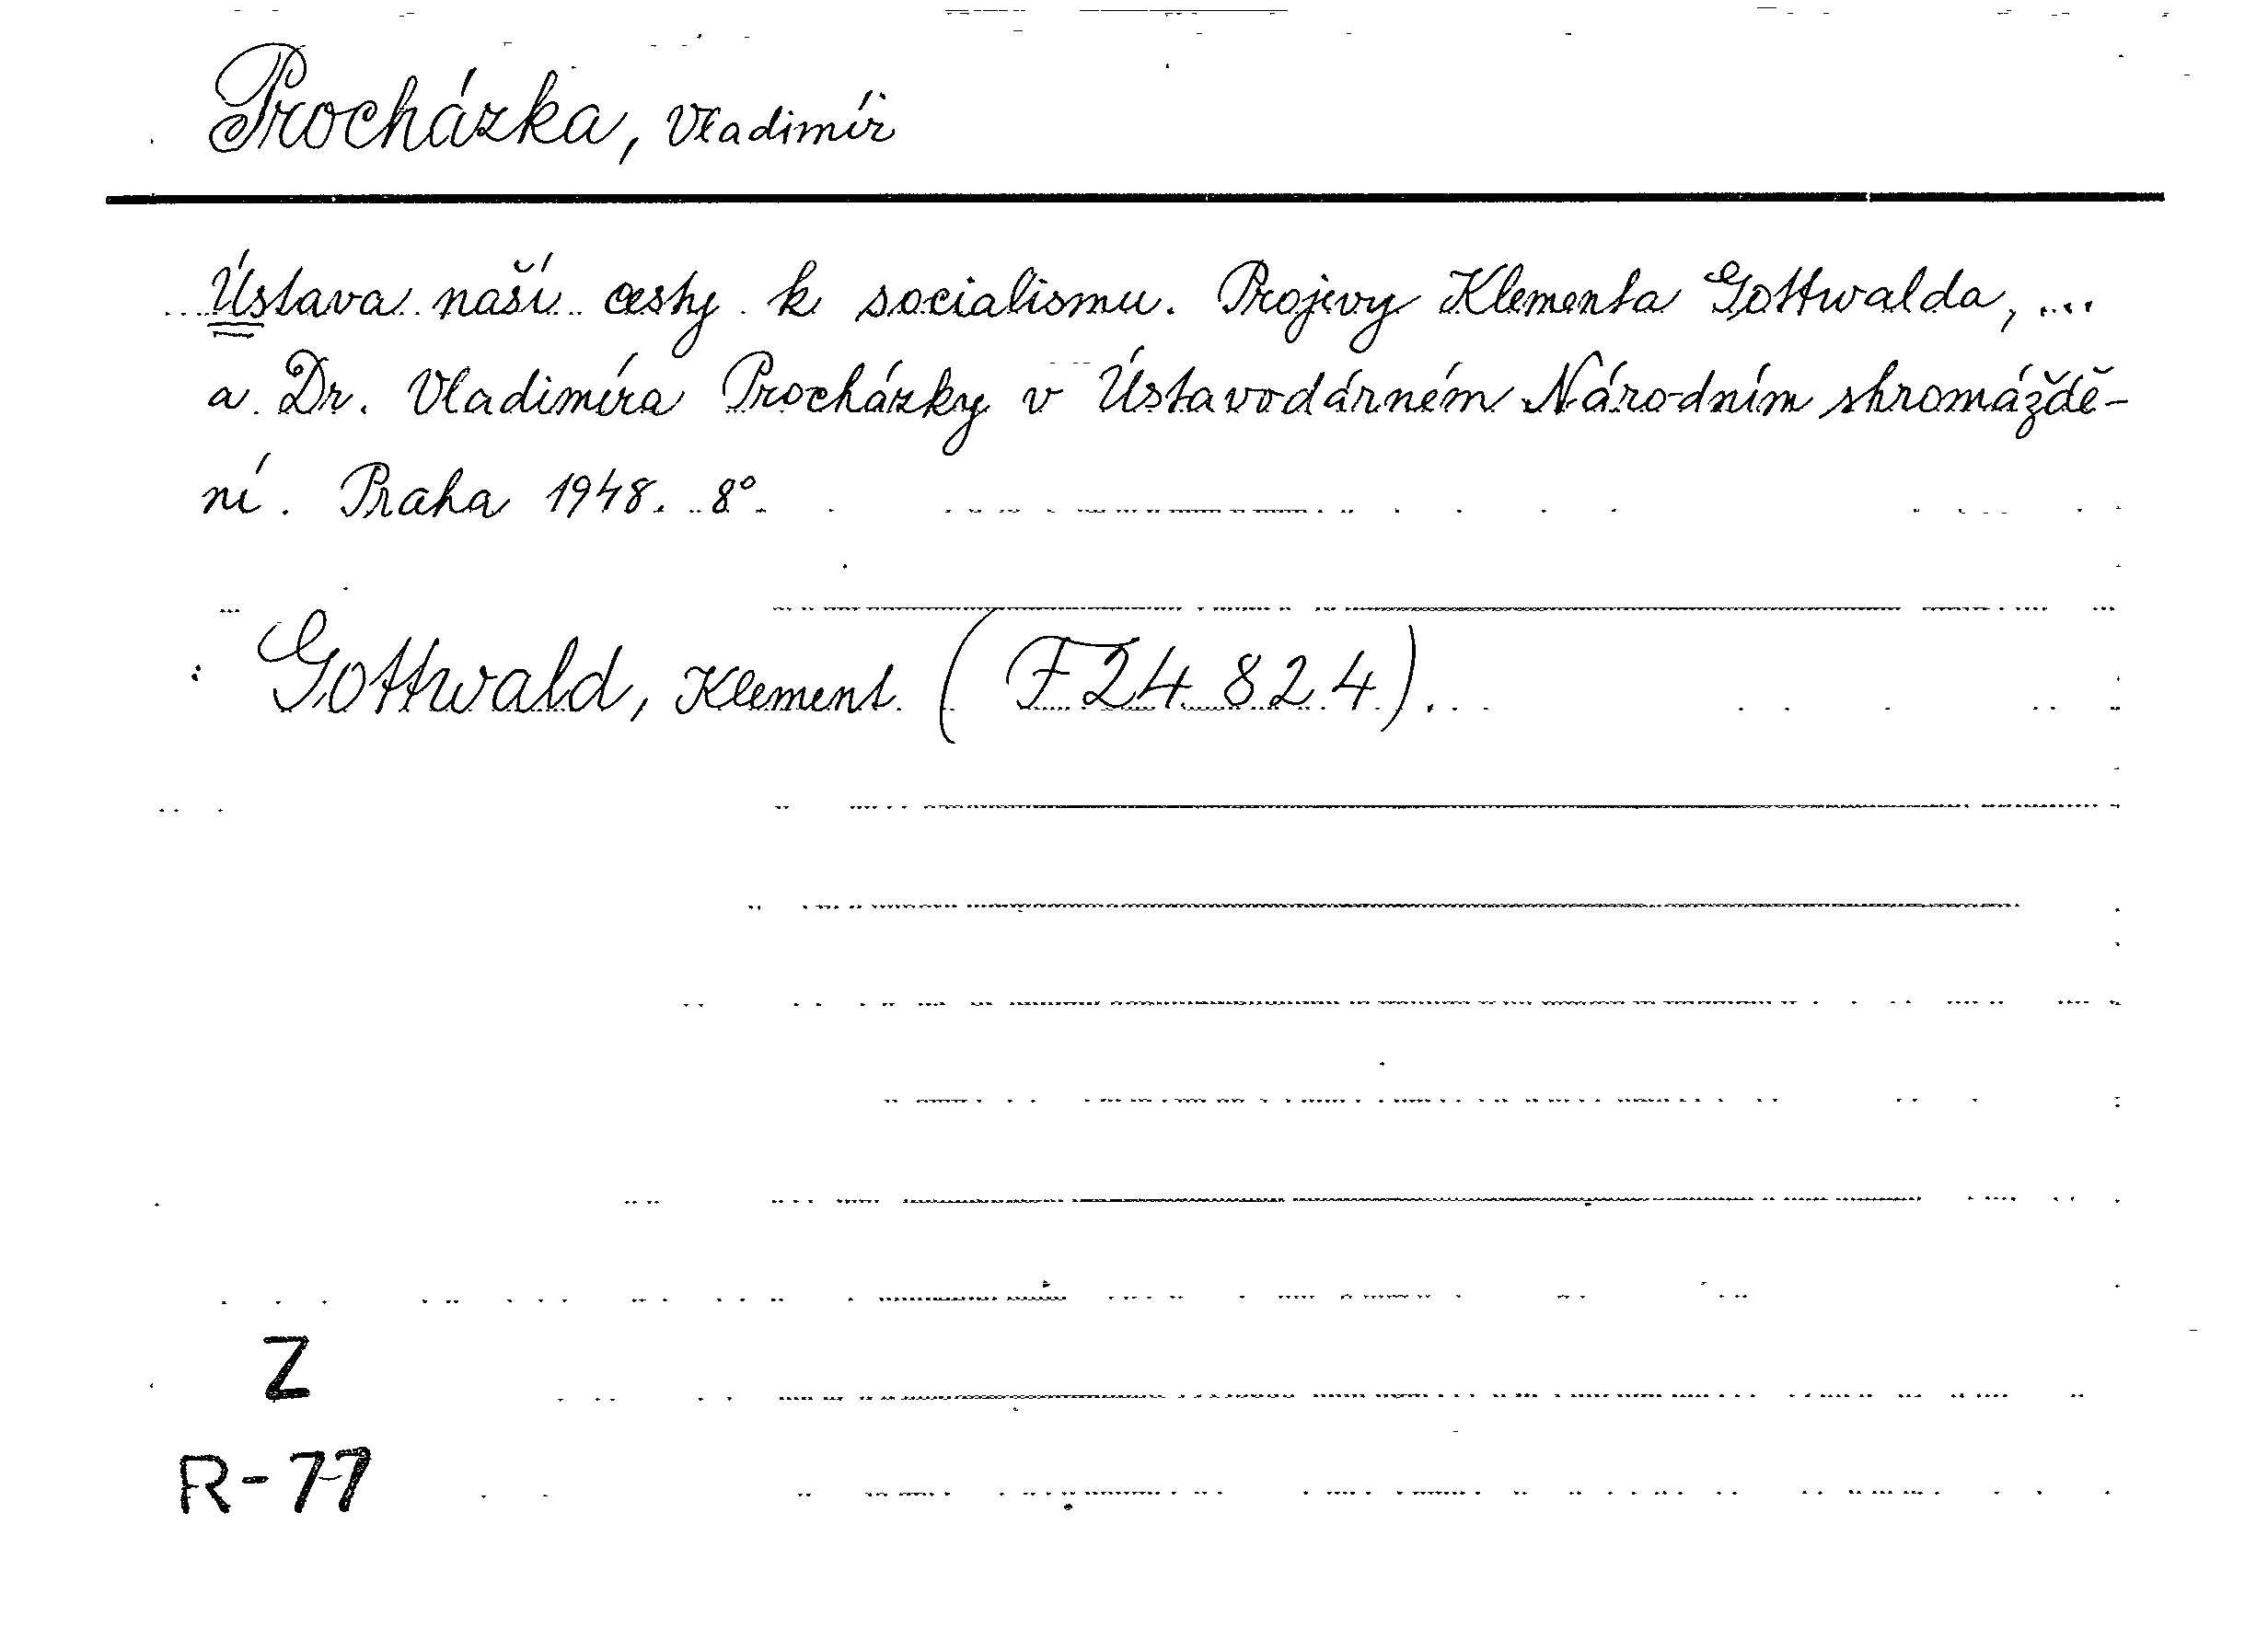 Procházka, Vladimír
Ústava naší cesty k socialismu. Projevy Klementa Gottwalda, ...
a Dr. Vladimíra Procházky v Ústavodárném Národním shromáždě-
ní. Praha 1948. 8°
Gottwald, Klement (F 24 824).
Z
R-77